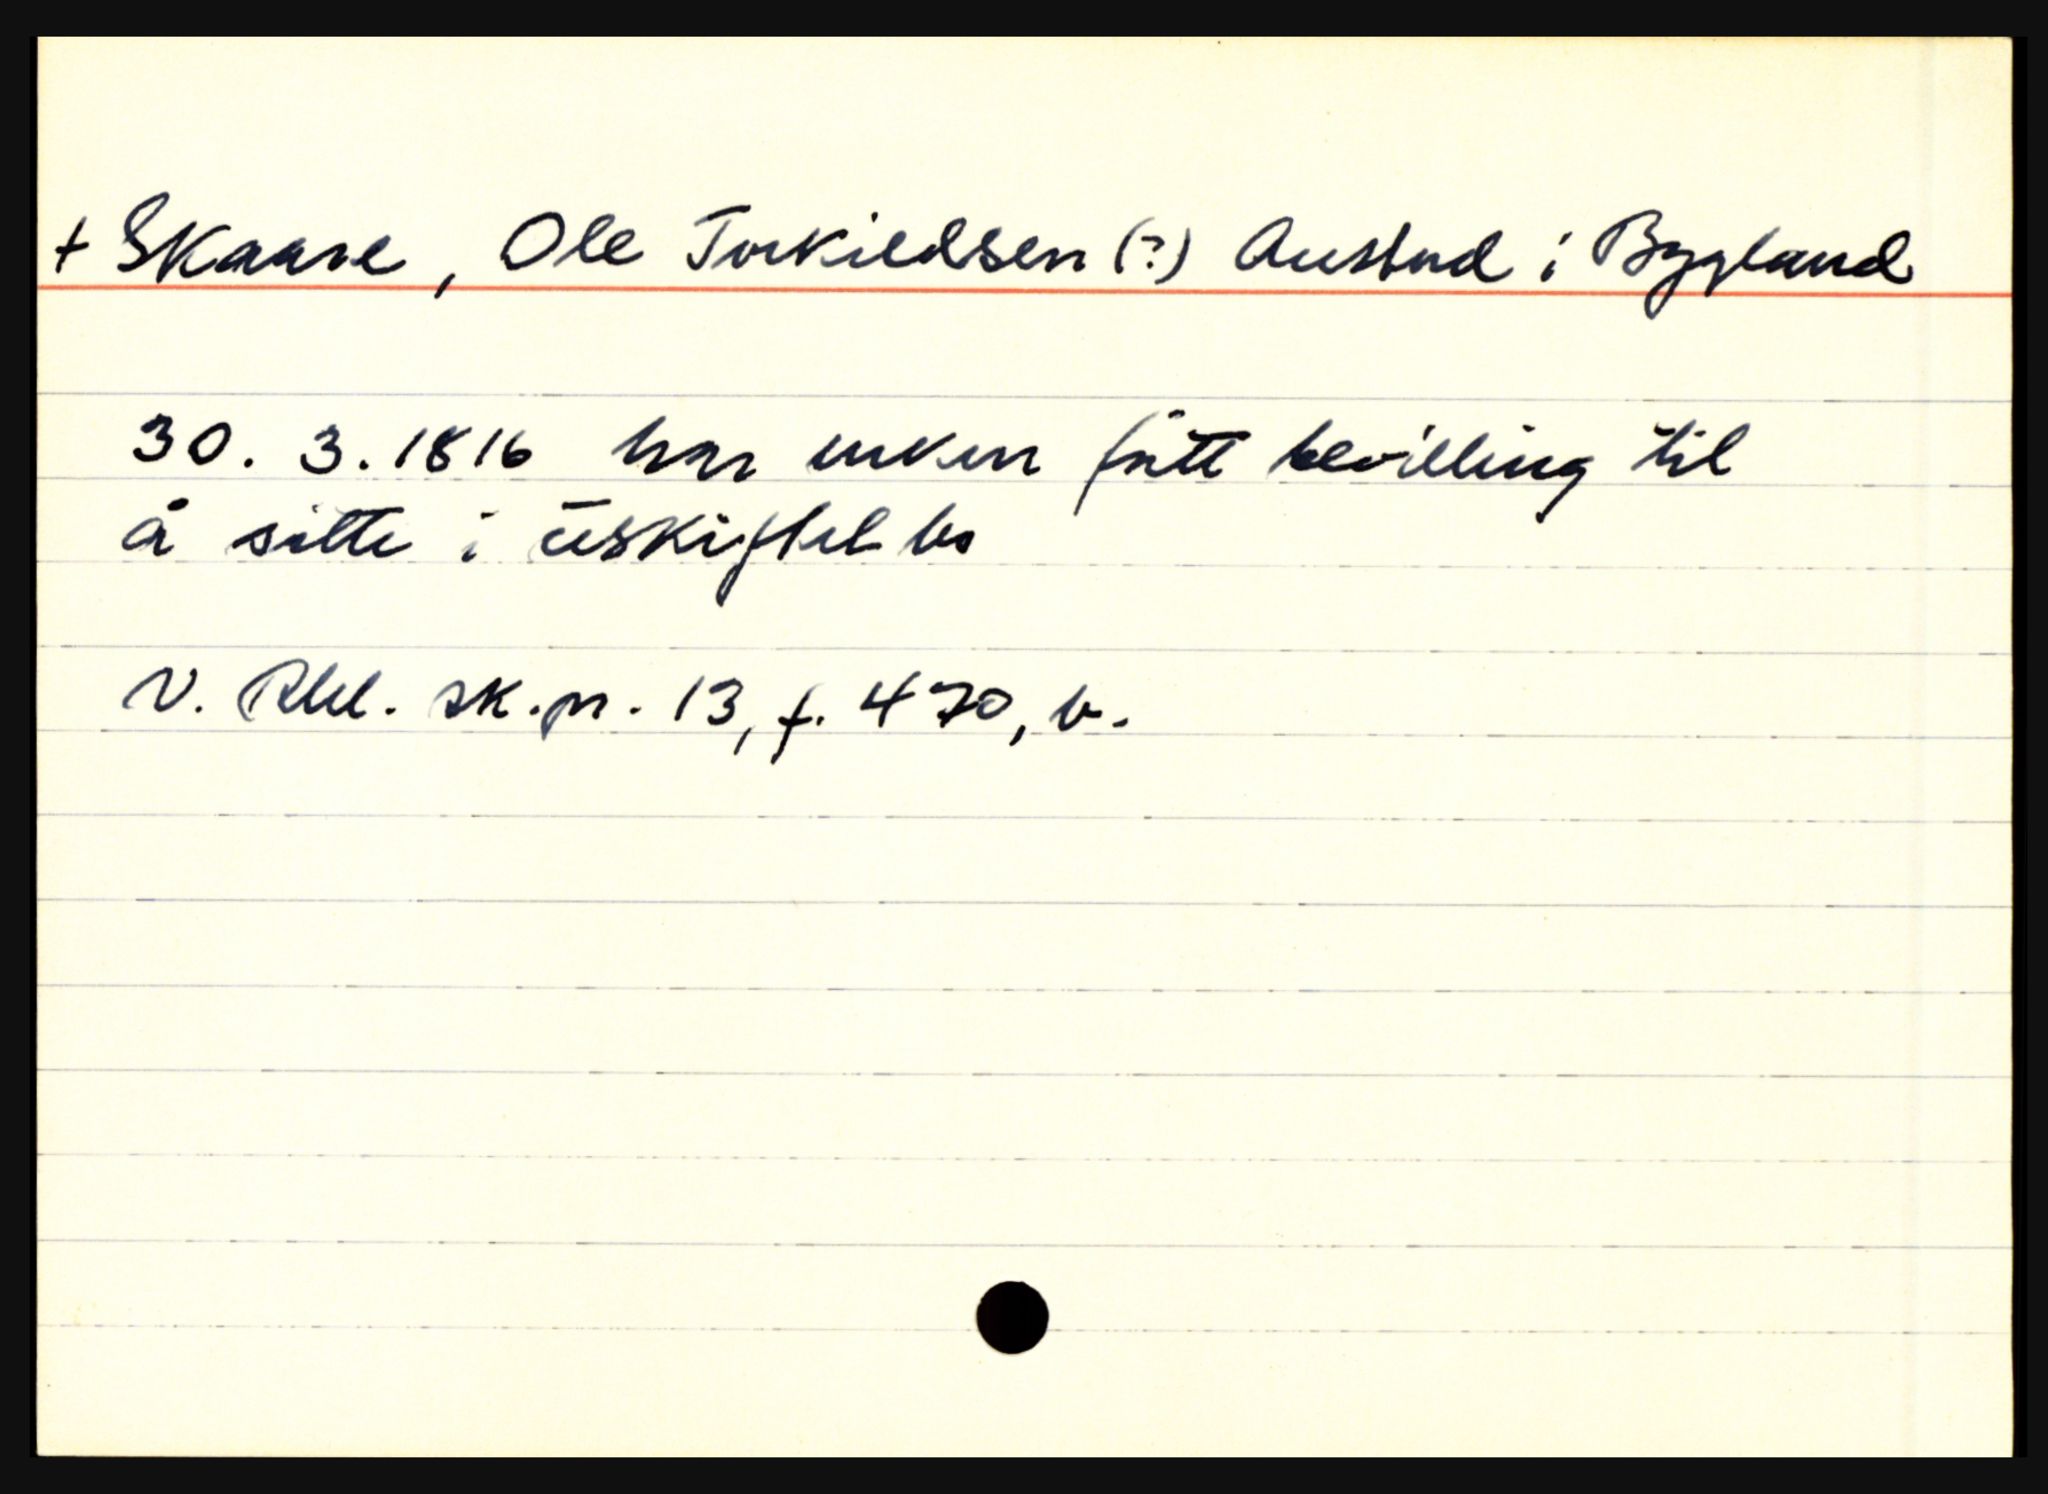 + Skaare, Ole Torkieldsen (?) Austad i Bygland
30. 3. 1816 har enken fått bevilling til
å sitte i uskiftet bo
V. Rbd. sk.pr. 13, f. 470, b.